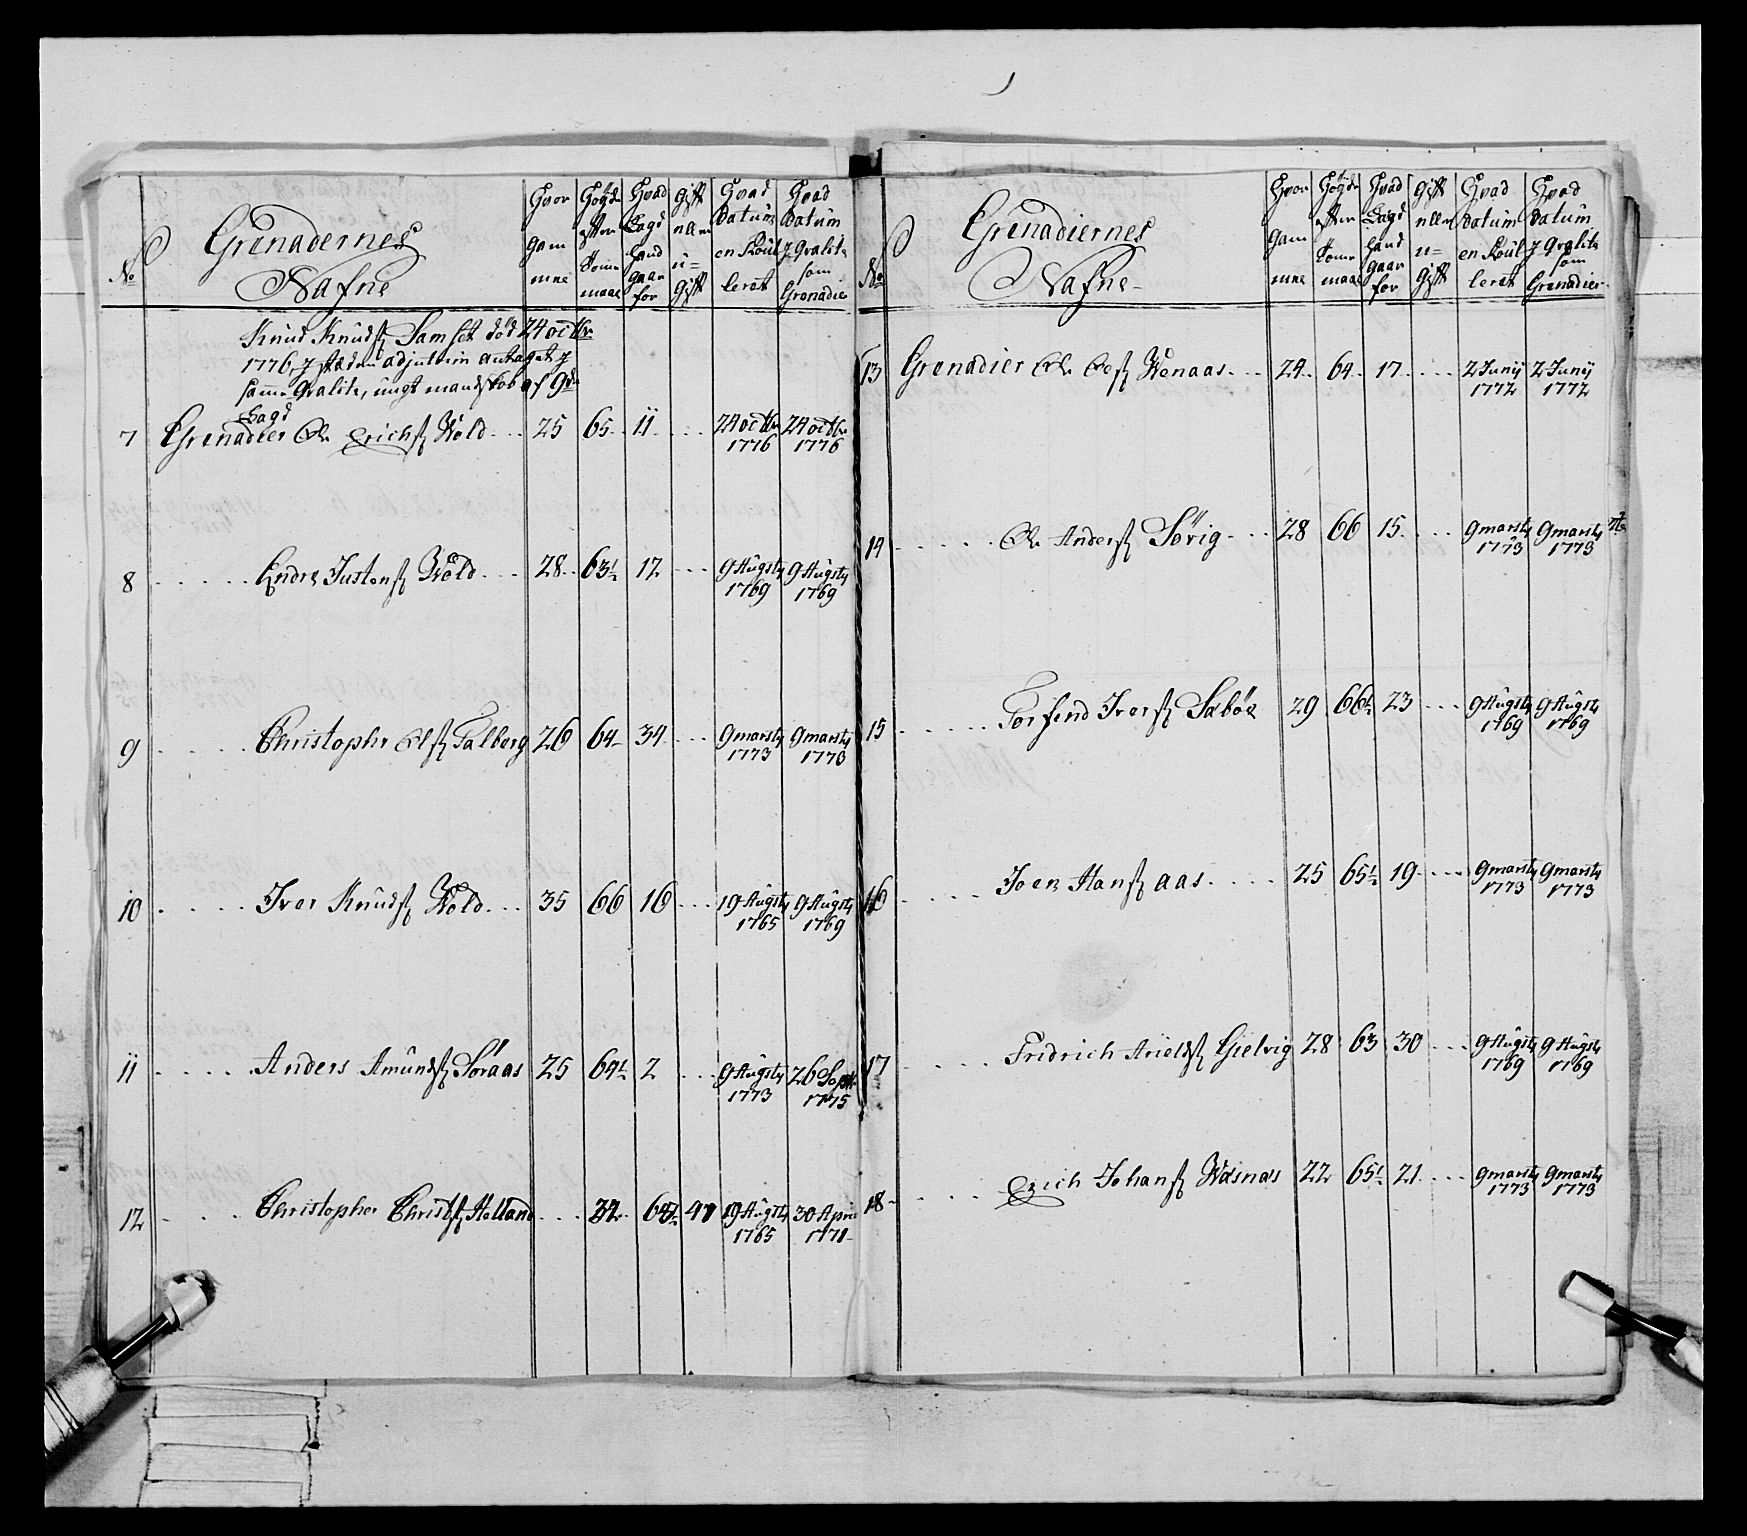 No
Grenadernes
Nafne
Hvor gam mne
Høyde efter tome maal
Hvad Lagd hand gaar for
gift eller u= gift
Hvad datum enroul leret
Hvad datum j Qvalite som Grenadier
Knud Knuds. Samset død 24 octbr
1776, j steden adjutum antaget j
samme Qvalite, ungt mandskob af 9de
Lagd
7 Grenadier Ole Erichs. Wold . . . 25 65 11 . . . 24 octbr 1776 24 octbr 1776
8 . . . . . Endre Justens. Wold . . . 28 63½ 12 . . . 9 Augsty 1769 9 Augsty 1769
9 . . . . . Christopher Ols. Talberg 26 64 34 . . . 9 marsty 1773 9 marsty 1773
10 . . . . Iver Knuds. Wold . . . 35 66 16 . . . 19 Augsty 1765 9 Augsty 1769
11 . . . . . Anders Amunds. Søraas 25 64½ 2 . . . 9 Augsty 1773 26 Sept 1775
12 . . . Christopher Christs. Helland . . . 32 64½ 47 19 Augsty 1765 30 April 1771
No
Grenadiernes
Nafne
Hvor gam mne
Høyde efter tome maal
Hvad Lagd hand gaar for
gift eller u= gift
Hvad datum enroul leret
Hvad datum j Qvalite som Grenadier
13 Grenadier Ole Oles. Wenaas . . . 24 64 17 . . . . 2 Junij 1772 2 Junij 1772
14 . . . . . Ole Anders. Sørig . . . 28 66 15 . . . . 9 marsty 1773 9 marsty 1773
15 . . . . . Torfend Ivers. Sæbøe 29 66½ 23 . . . 9 Augsty 1769 9 Augsty 1769
16 . . . . . Joen Hans. aas . . . . 25 65½ 19 . . . . 9 marsty 1773 9 marsty 1773
17 . . . . . Fridrich Arields. Gielvig 28 63 30 . . . 9 Augsty 1769 9 Augsty 1769
18 . . . . Erich Johans. Wæsnæs 22 65½ 21 . . . 9 marsty 1773 9 marsty 1773